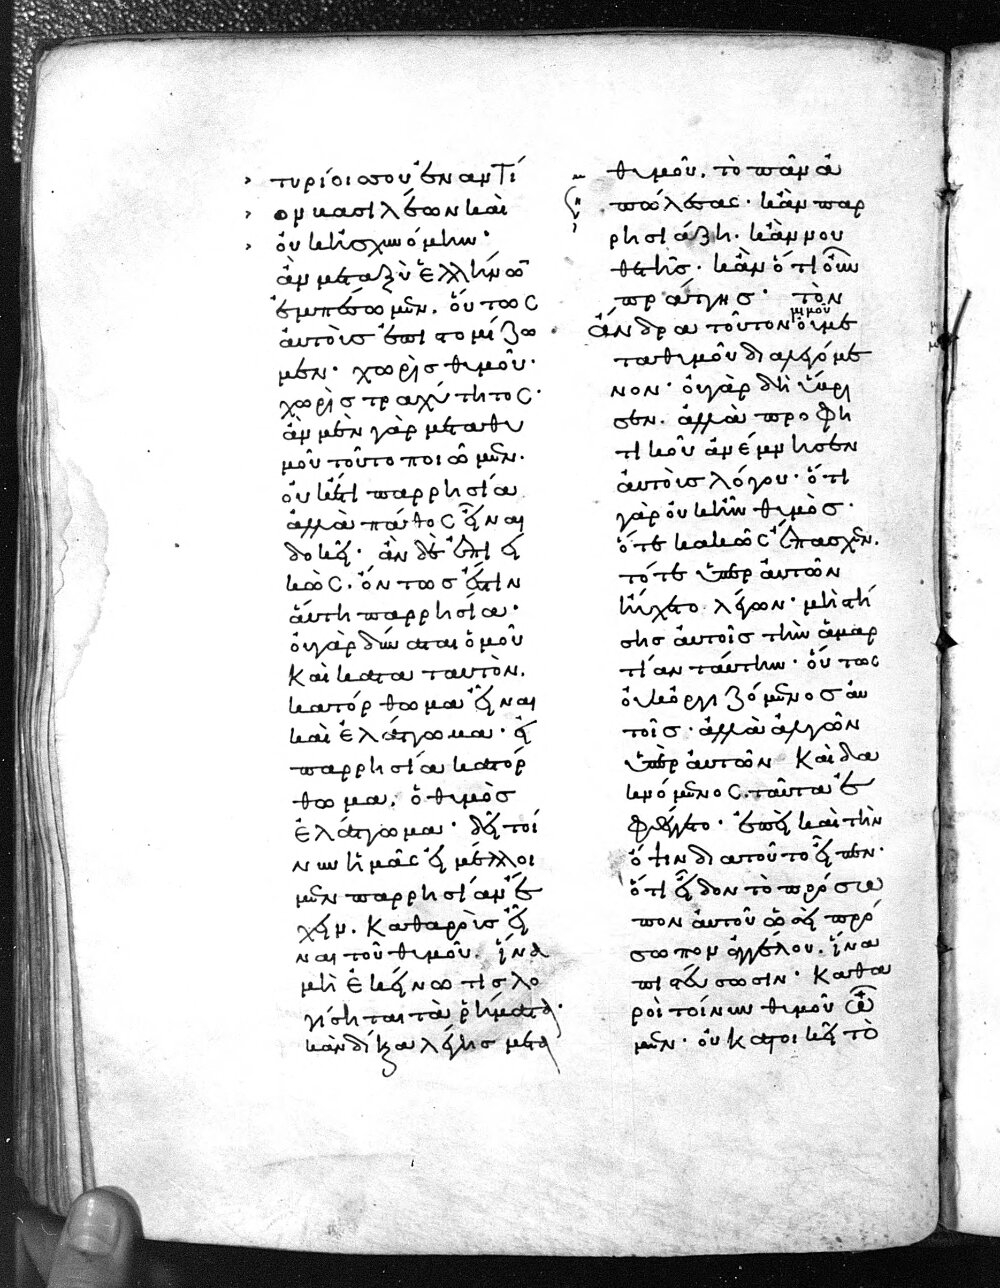 τυρίοις σου ἐναντί
ον βασιλέων καὶ
οὐκ ἠσχυνόμην·
ἂν μεταξὺ ἑλλήνων
ἐμπέσωμεν, οὕτως
αὐτοὺς ἐπιστομίζω
μεν· χωρὶς θυμοῦ·
χωρὶς τραχύτητος·
ἂν μὲν γὰρ μετὰ θυ
μοῦ τοῦτο ποιῶμεν.
οὐκέτι παρρησία
ἀλλὰ πάθος εἶναι
δοκεῖ· ἂν δὲ ἐπιεί
κῶς. ὄντως ἐστὶν
αὕτη παρρησία·
οὐ γὰρ δύναται ὁμοῦ
καὶ κατα ταυτὸν.
κατόρθωμα εἶναι
καὶ ἐλάττωμα· ἡ
παρρησία κατόρ
θωμα. ὁ θυμὸς
ἐλάττωμα· δεῖ τοί
νυν ἡμᾶς εἰ μέλλοι
μεν παρρησίαν ἔ
χειν. καθαροὺς εἶ
ναι τοῦ θυμοῦ. ἵνα
μὴ ἐκείνω τις λο
γίσηται τὰ ῥήματα·
κἂν δίκαια λέγης μετὰ
θυμοῦ, τὸ πᾶν ἀ
πώλεσας· κἂν παρ
ρησιάζη. κἂν νου
θετῆς· κἂν ὁτιοῦν
πράττης· τὸν
ἄνδρα τοῦτον ὅρα μὴ με
τὰ θυμοῦ διαλεγόμε
νον· οὐ γὰρ δὴ ὕβρι
σεν. ἀλλὰ προφη
τικοῦ ἀνέμνησεν
αὐτοὺς λόγου· ὅτι
γὰρ οὐκ ἦν θυμὸς·
ὅτε κακῶς ἔπασχεν.
τότε ὑπὲρ αὐτῶν
ηὔχετο λέγων· μὴ στή
σης αὐτοῖς τὴν ἁμαρ
τίαν ταύτην· οὕτως
οὐκ ὀργιζόμενος αὐ
τοῖς· ἀλλὰ ἀλγῶν
ὑπὲρ αὐτῶν καὶ δα
κνόμενος. ταῦτα ἐ
φθέγγετο· ἐπεὶ καὶ τὴν
ὄψιν διὰ τοῦτο εἶπεν·
ὅτι εἶδον τὸ πρόσω
πον αὐτοῦ ὡσεὶ πρό
σωπον ἀγγέλου. ἵνα
πιστεύσωσιν· καθα
ροὶ τοίνυν θυμοῦ ὦ
μεν· οὐ κατοικεῖ τὸ